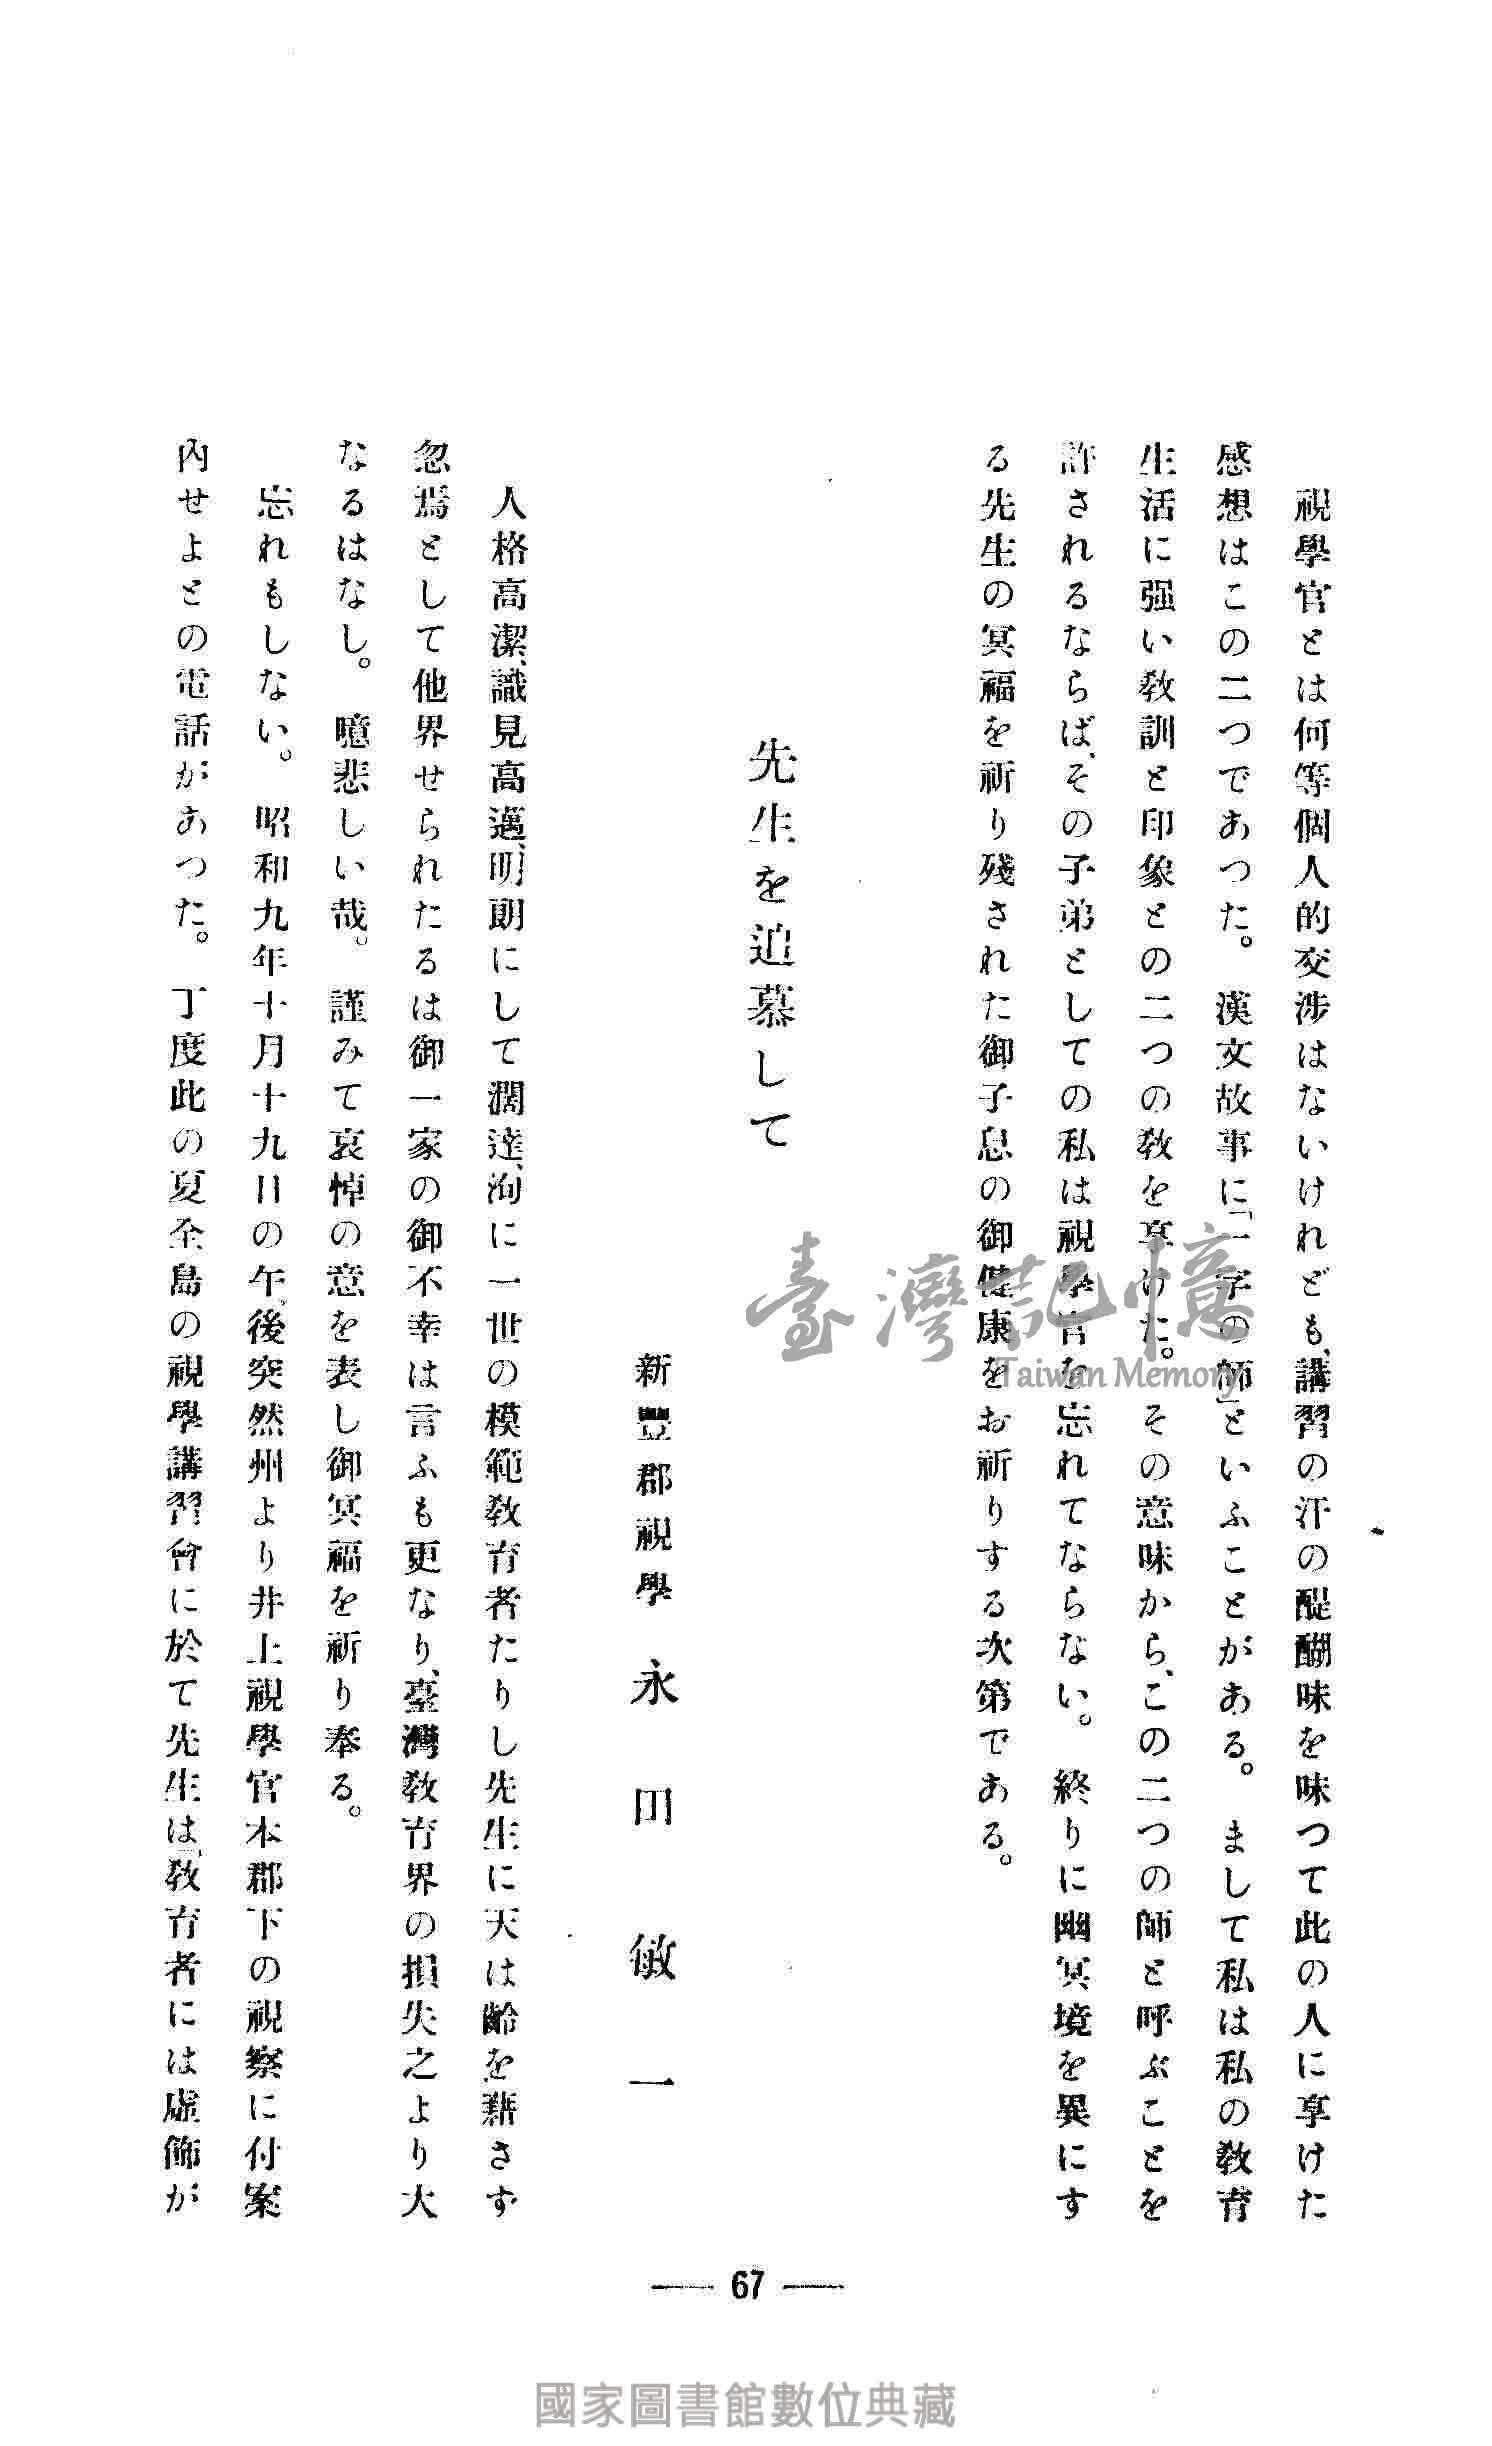 視學官とは何等個人的交渉はないけれども、講習の汗の醍醐味を味つて此の人に享けた
感想はこの二つであつた。漢文故事に「一字の師」といふことがある。まして私は私の教育
生活に强い教訓と印象との二つの教を享けた。その意味から、この二つの師と呼ぶことを
許されるならば、その子弟としての私は視學官を忘れてならない。終りに幽冥境を異にす
る先生の冥福を祈り殘された御子息の御健康をお祈りする次第である。
先生を追慕して
新豐郡視學 永田敏一
人格高潔、識見高邁、明朗にして濶達、洵に一世の模範教育者たりし先生に天は齡を藉さず
忽焉として他界せられたるは御一家の御不幸は言ふも更なり、臺灣教育界の損失之より大
なるはなし。噫悲しい哉。謹みて哀悼の意を表し御冥福を祈り奉る。
忘れもしない。昭和九年十月十九日の午後突然州より井上視學官本郡下の視察に付案
內せよとの電話があつた。丁度此の夏全島の視學講習會に於て先生は「教育者には虛飾が
— 67 —
臺灣記憶
Taiwan Memory
國家圖書館數位典藏